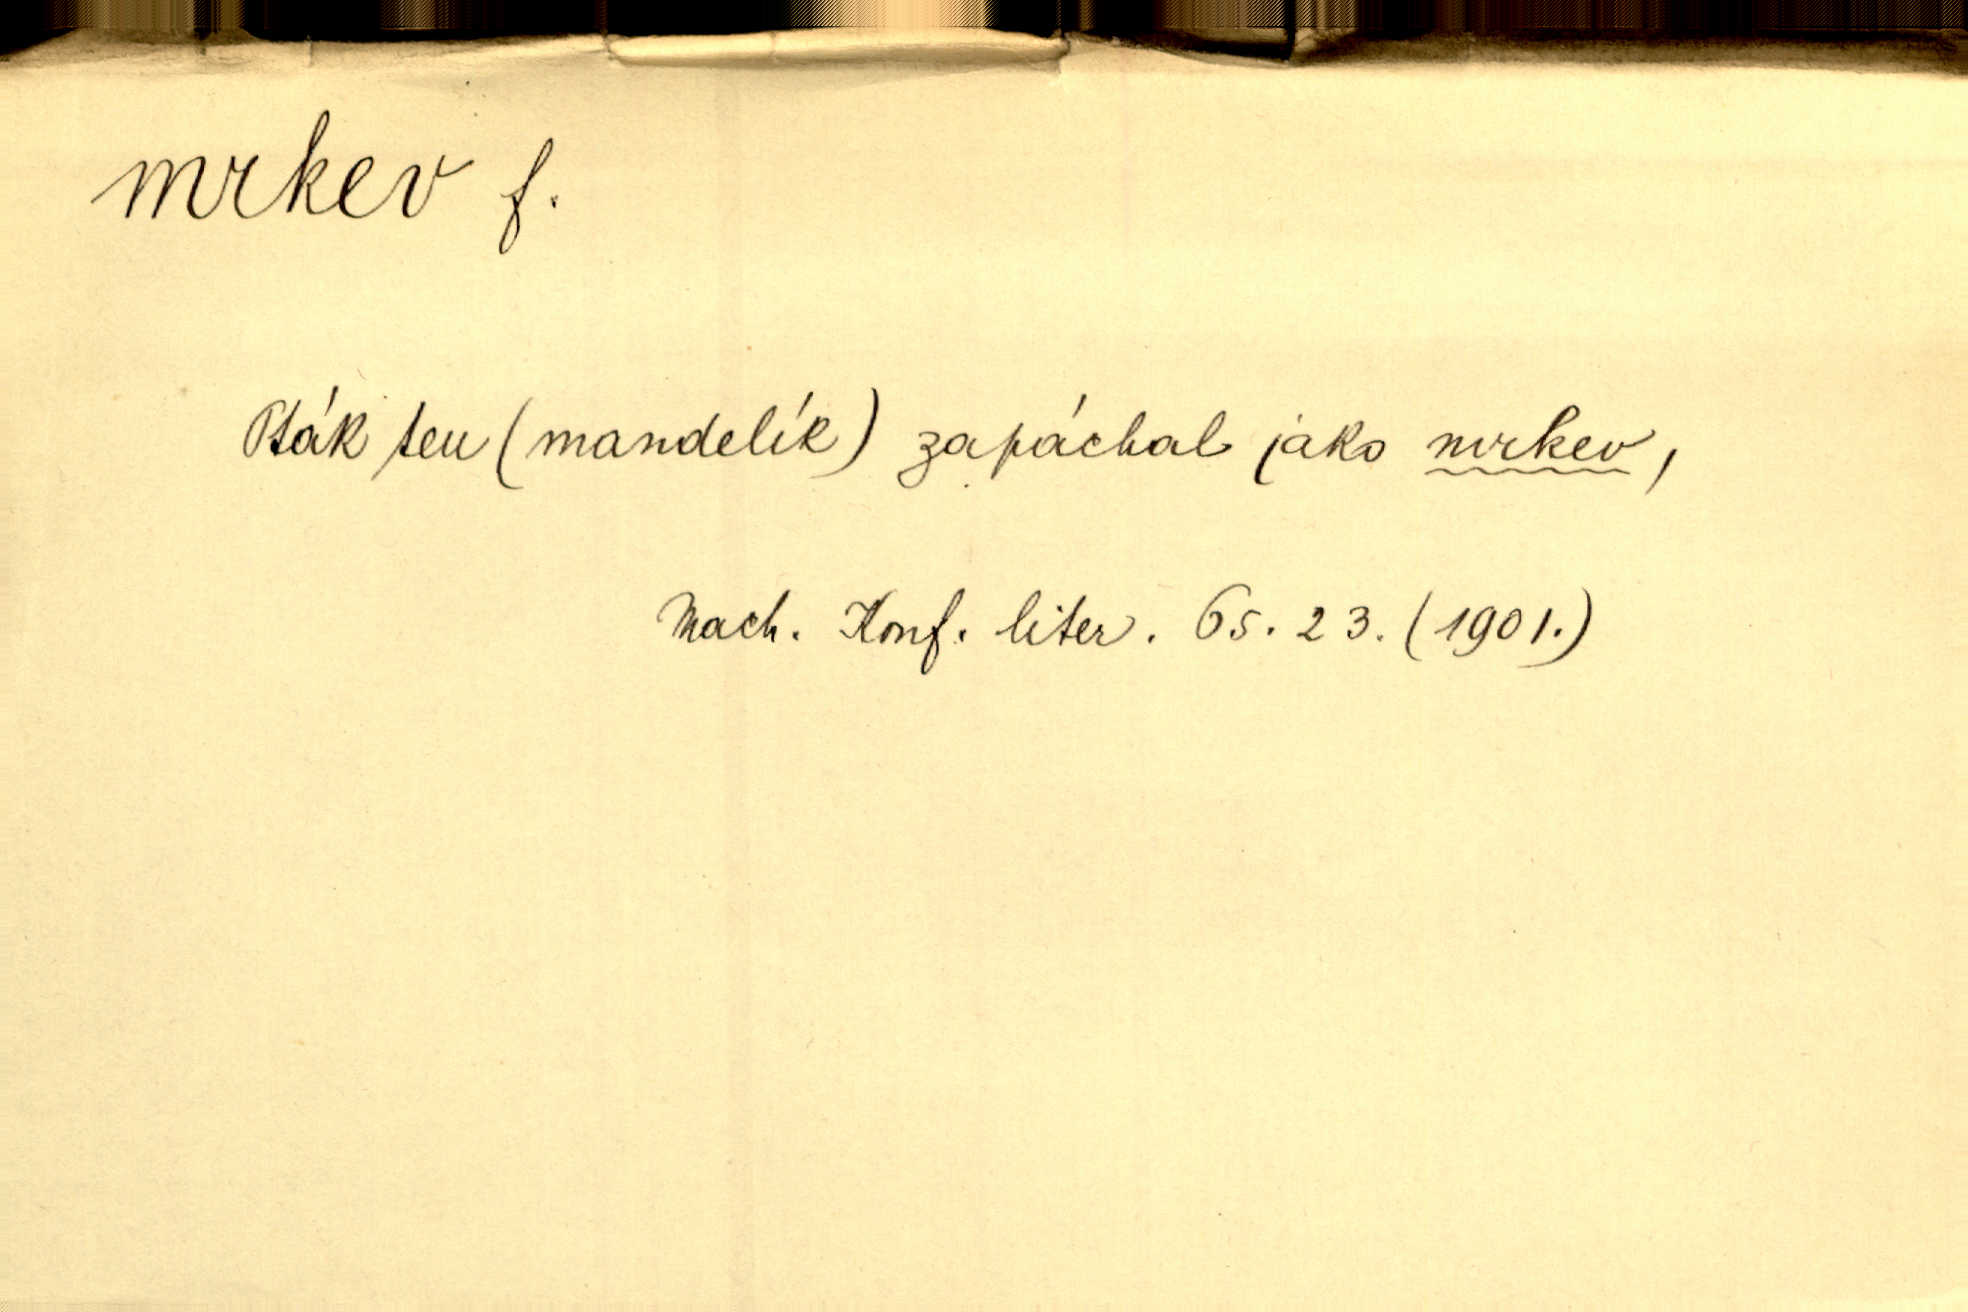 mrkev f.
Pták ten (mandelík) zapáchal jako mrkev,
Mach. Konf. liter. 65. 23. (1901.)